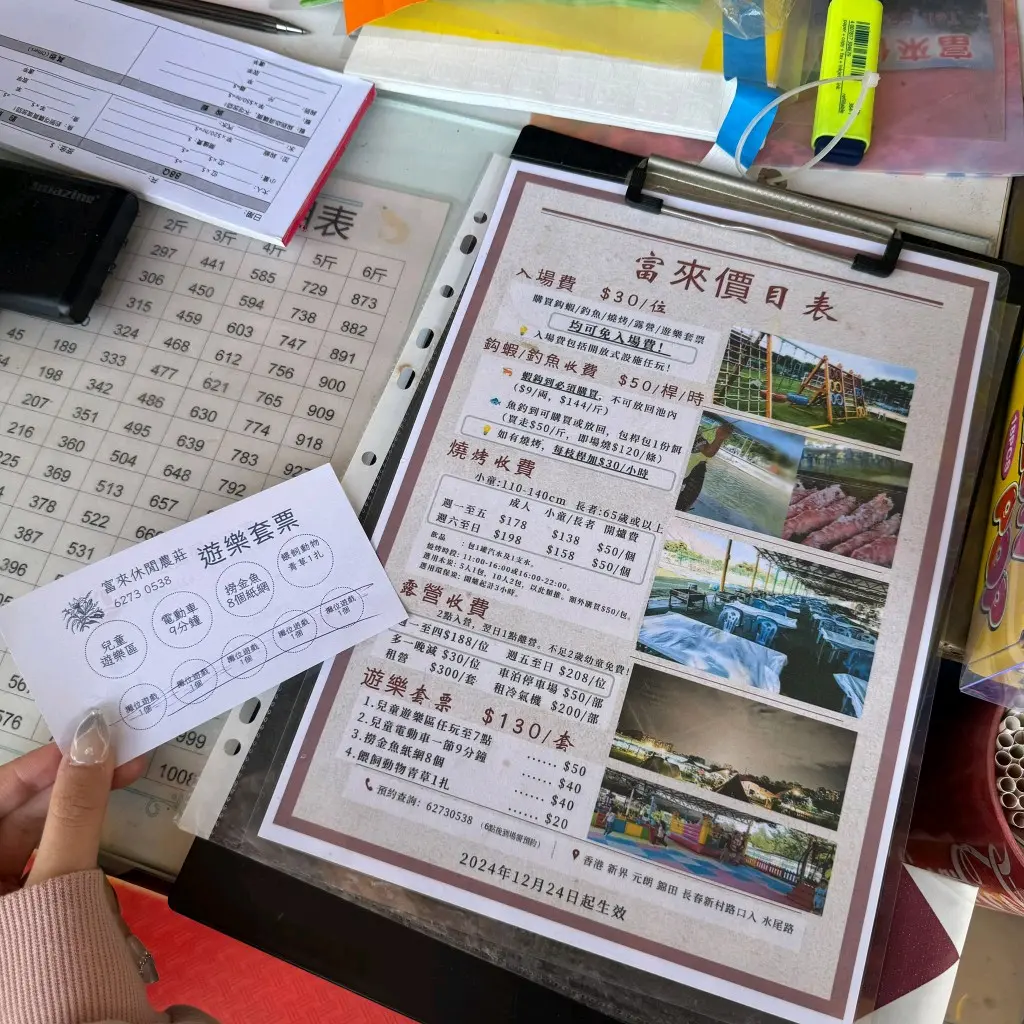 富來價目表
入場費 $30/位
購買鈎蝦/釣魚/燒烤/露營/遊樂套票
均可免入場費！
入場費包括開放式設施任玩！
鈎蝦/釣魚收費 $50/桿/時
蝦鈎到必須購買，不可放回池內
($9/両，$144/斤)
魚釣到可購買或放回，包桿包1份餌
(買走$50/斤，即場燒$120/條)
如有燒烤，每枝桿加$30/小時
燒烤收費
小童:110-140cm 長者:65歲或以上
成人 小童/長者 開爐費
週一至五 $178 $138 $50/個
週六至日 $198 $158 $50/個
飲品 ：包1罐汽水及1支水。
燒烤時段：11:00-16:00或16:00-22:00。
應用木炭：5人1包，10人2包，以此類推。額外購買$50/包。
應用環保炭：開爐起計3小時。
露營收費
2點入營，翌日1點離營。不足2歲幼童免費！
週一至四$188/位 週五至日 $208/位
多一晚減 $30/位 車泊停車場 $50/部
租營 $300/套 租冷氣機 $200/部
遊樂套票 $130/套
1.兒童遊樂區任玩至7點 ...... $50
2.兒童電動車一節9分鐘 ...... $40
3.撈金魚紙網8個 ...... $40
4.餵飼動物青草1扎 ...... $20
預約查詢：62730538
香港 新界 元朗 錦田 長春新村路口入 水尾路
2024年12月24日起生效
富來休閒農莊
6273 0538
遊樂套票
兒童
遊樂區
電動車
9分鐘
撈金魚
8個紙網
餵飼動物
青草1扎
攤位遊戲
1個
攤位遊戲
1個
攤位遊戲
1個
攤位遊戲
1個
攤位遊戲
1個
2斤 3斤 4斤 5斤 6斤
297 441 585 729 873
306 450 594 738 882
315 459 603 747 891
189 324 468 612 756 900
198 333 477 621 765 909
207 342 486 630 774 918
216 351 495 639 783
360 504 648 792
369 513 657
378 522 666
387 531
396
576
999
1008